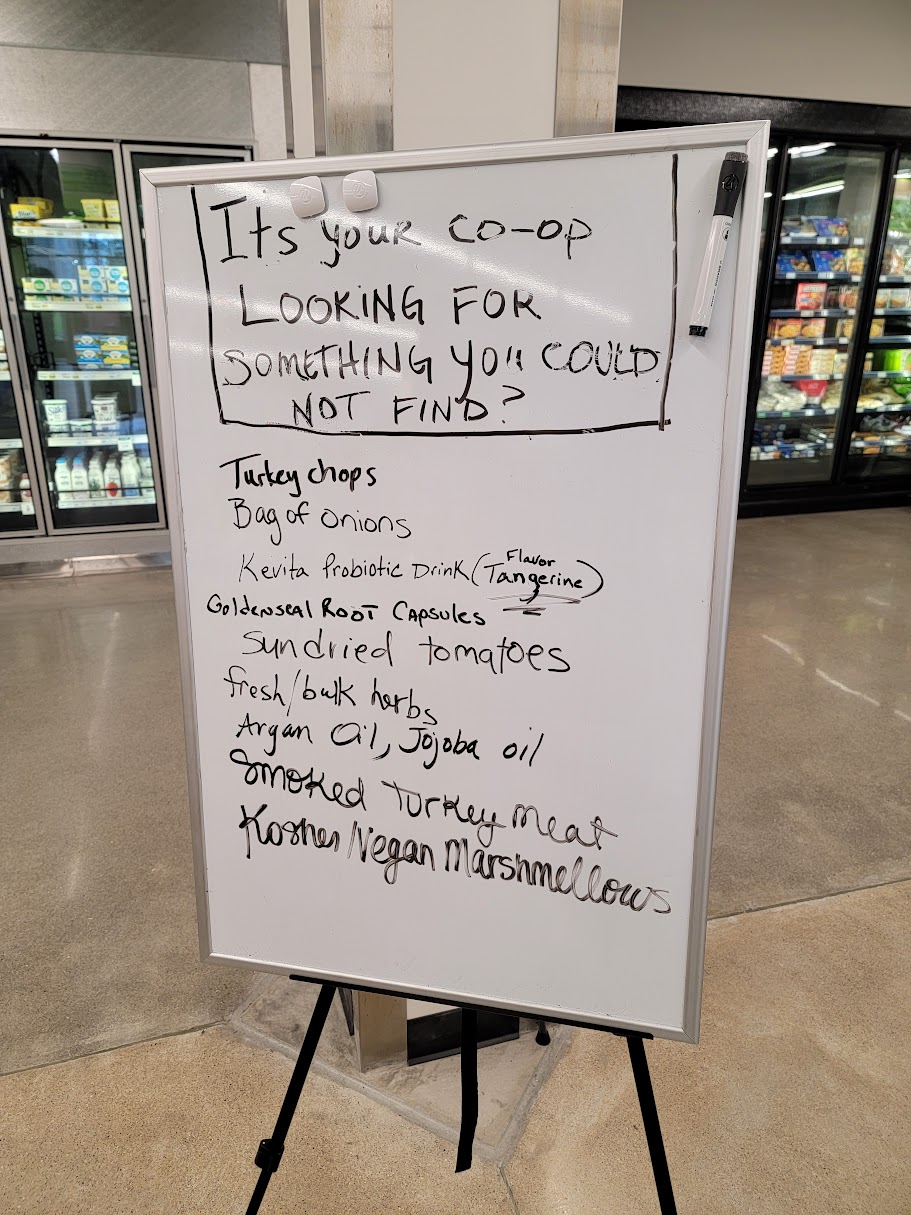 Its your co-op
LOOKING FOR
SOMETHING YOU COULD
NOT FIND?
Turkey chops
Bag of onions
Kevita Probiotic Drink (Flavor Tangerine)
Goldenseal Root Capsules
Sundried tomatoes
fresh/bulk herbs
Argan Oil, Jojoba oil
Smoked Turkey meat
Kosher/Vegan Marshmellows